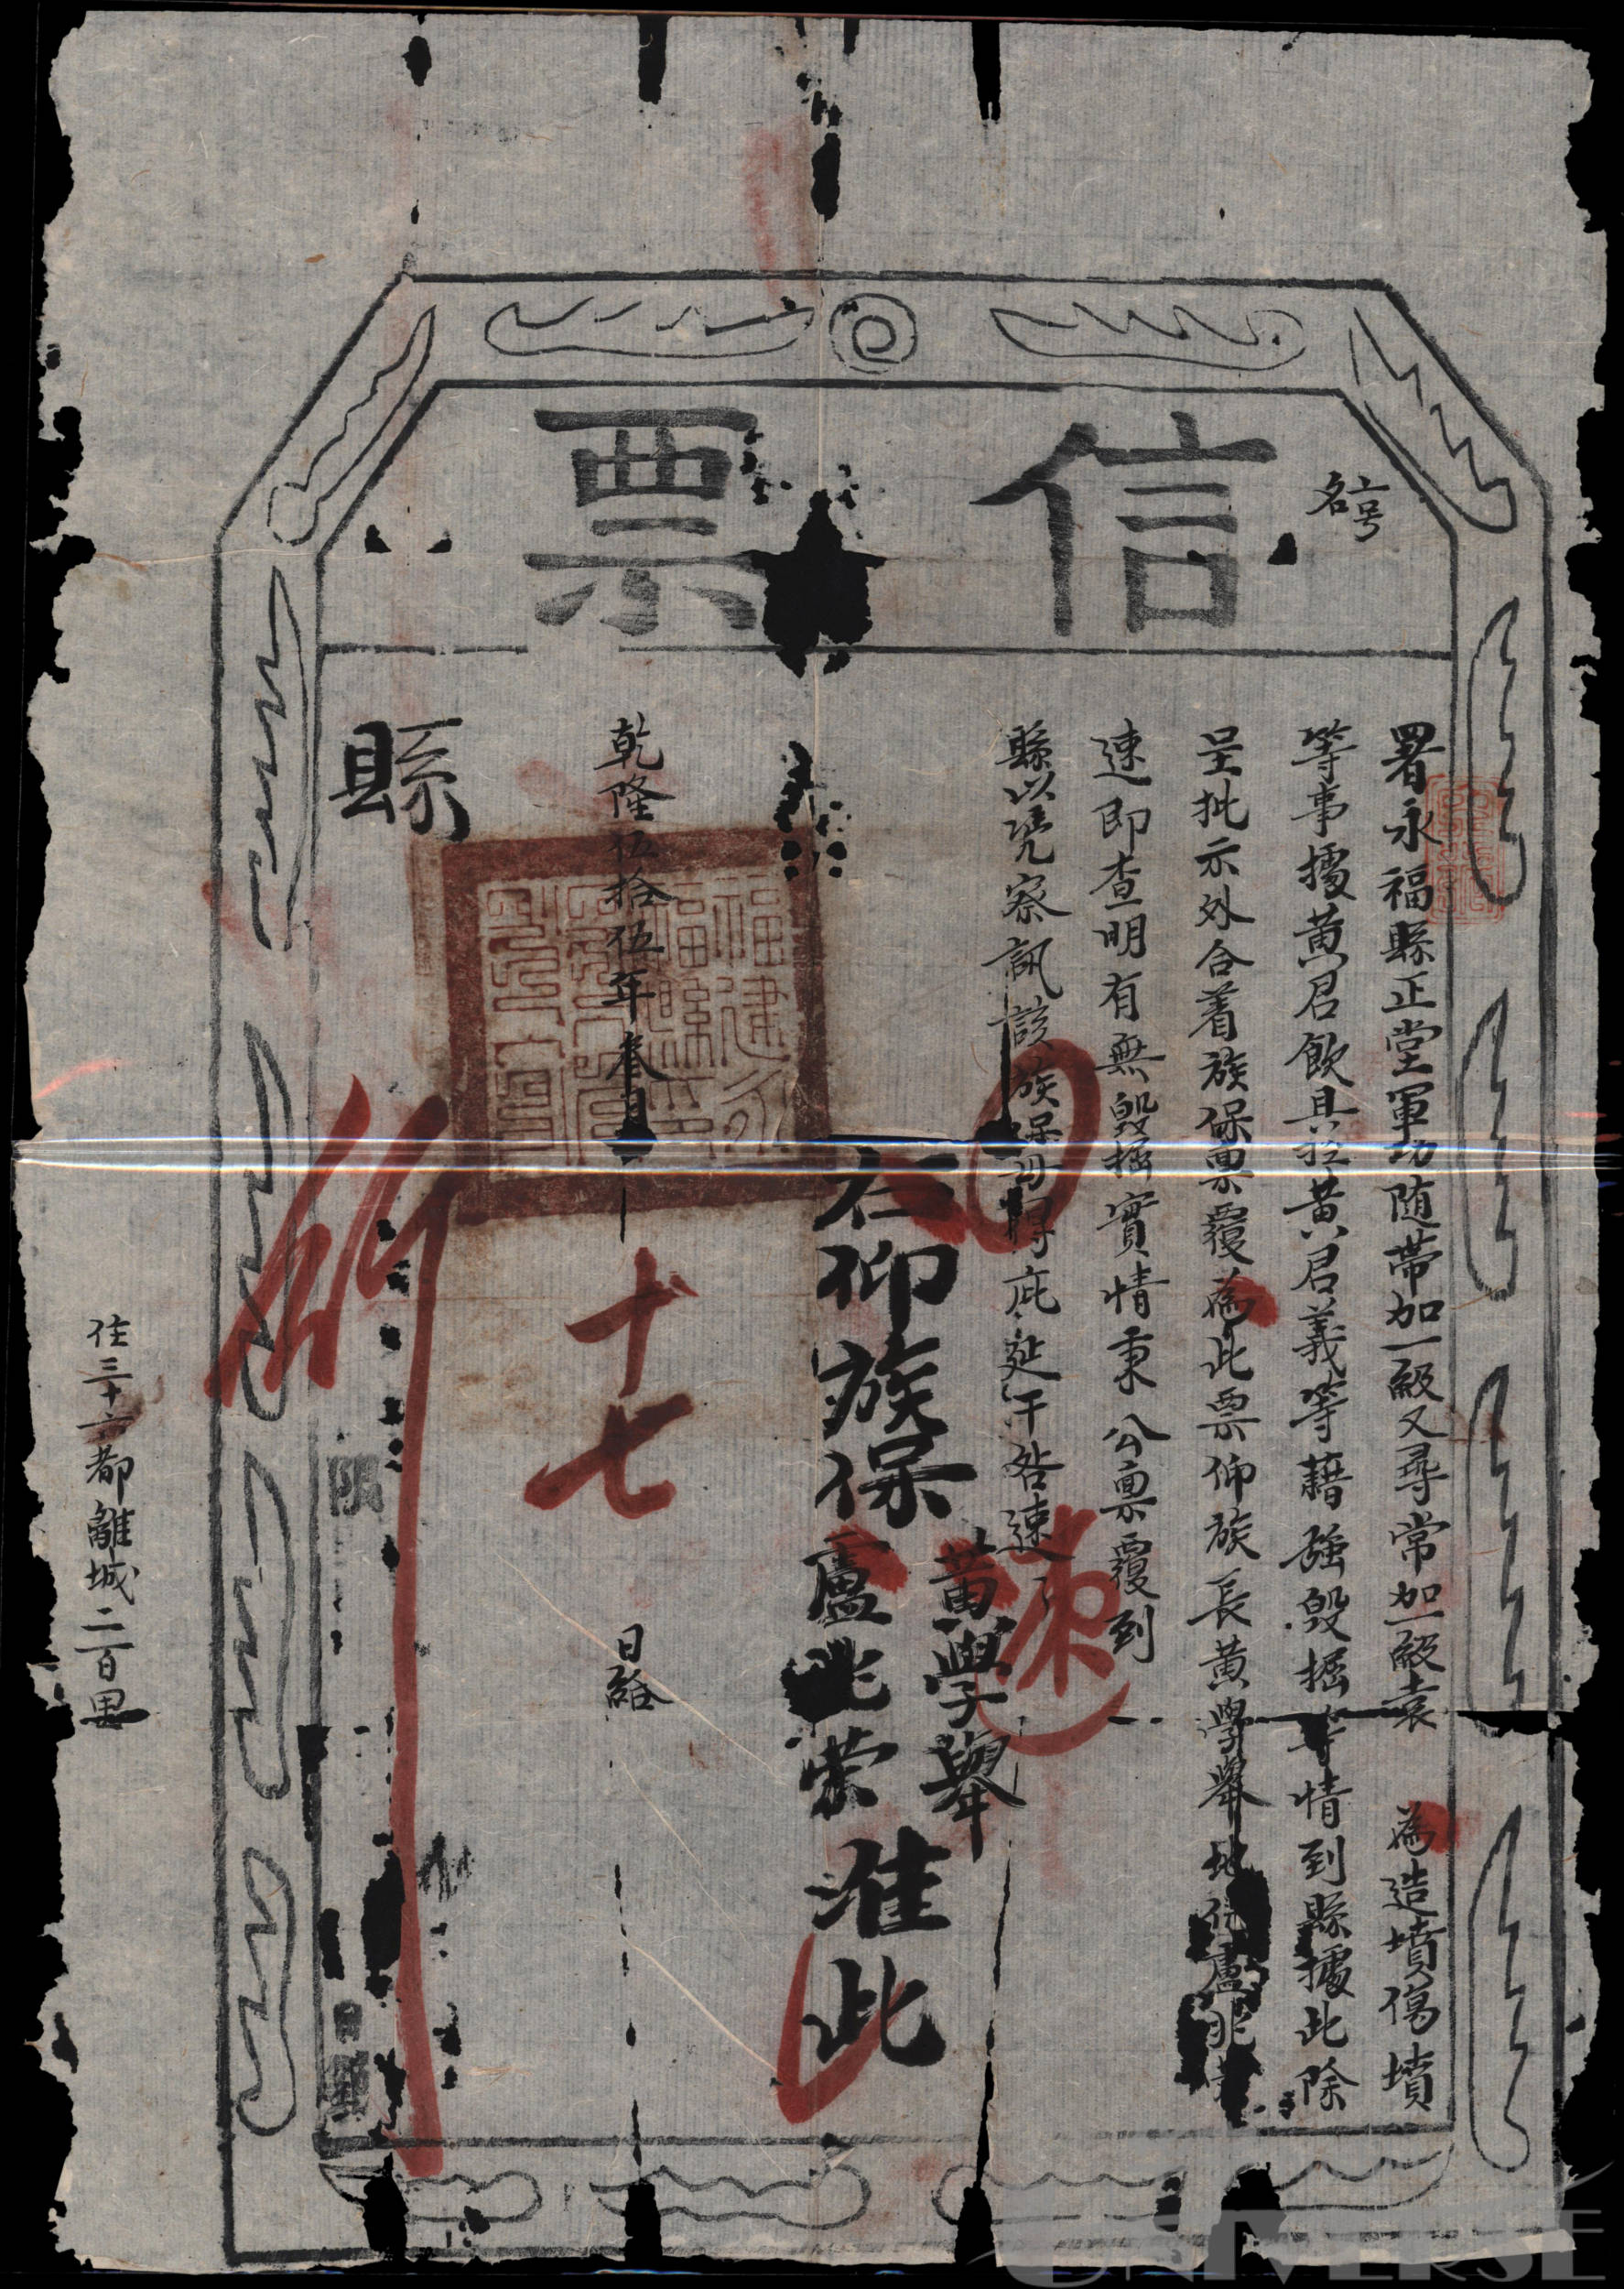 信票
名号
署永福縣正堂軍功随帶加一級又尋常加一級袁 為造墳傷墳
等事據黄君飲具控黄君義等藉強毀掘等情到縣據此除
呈批示外合着族保稟覆為此票仰族長黄學舉地保盧兆
速即查明有無毀掘實情秉公稟覆到
縣以凭察訊該族保毋得庇延干咎速
速
右仰族保
黄學舉
盧兆崇
准此
乾隆伍拾伍年叁月
十七
日給
福建永
福縣
縣
行
限
日繳
住三十六都離城二百里
UNIVERSE